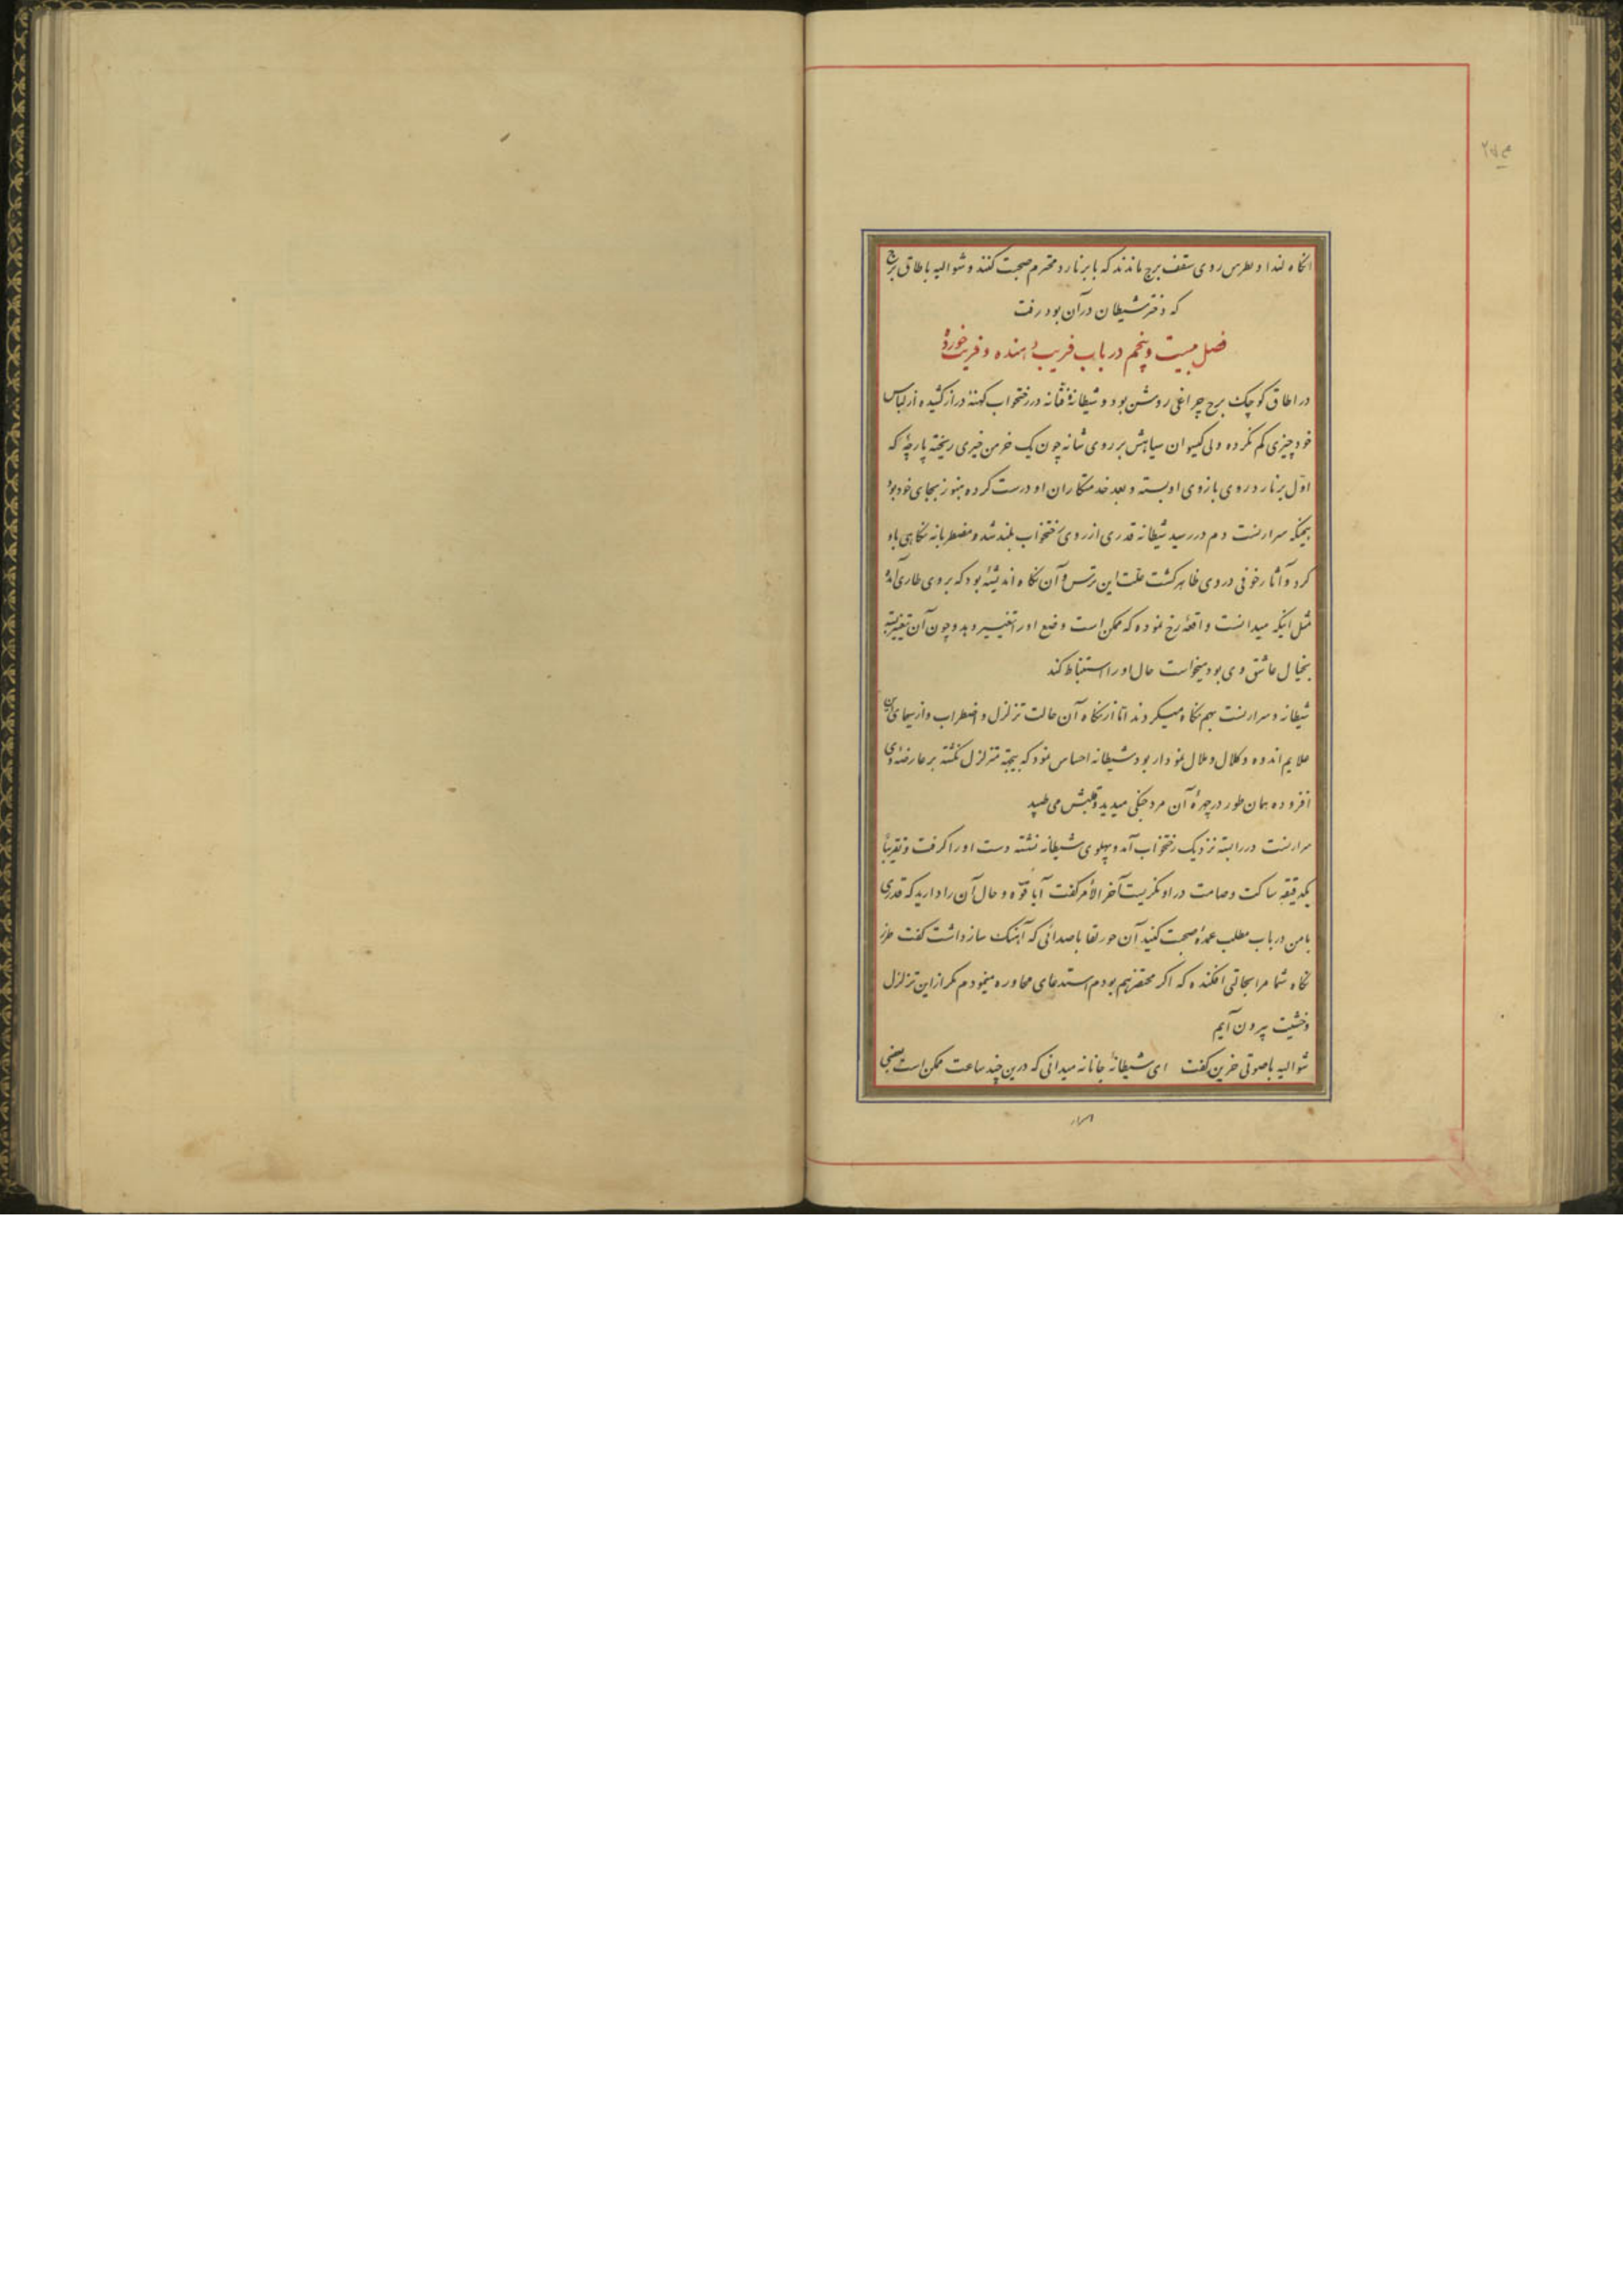 آنگاه لندا و بطرس روی سقف برج ماندند که با برنارد محترم صحبت کنند و شوالیه باطاق برج
که دختر شیطان در آن بود رفت
فصل بیست و پنجم در باب فریب دهنده و فریب خورده
در اطاق کوچک برج چراغی روشن بود و شیطانهٔ فتانه در رختخواب کهنه دراز کشیده از لباس
خود چیزی کم نکرده ولی گیسوان سیاهش بر روی شانه چون یک خرمن خیری ریخته پارچهٔ که
اوّل برنارد روی بازوی او بسته و بعد خدمتکاران او درست کرده هنوز بجای خود بود
همینکه سرارنست دم در رسید شیطانه قدری از روی رختخواب بلند شده مضطربانه نگاهی باو
کرد و آثار خوفی در وی ظاهر گشت علّت این ترس و آن نگاه اندیشهٔ بود که بر وی طاری آمد
مثل اینکه میدانست واقعهٔ رخ نموده که ممکن است وضع او را تغییر دهد و چون آن تغییر بسته
بخیال عاشق وی بود میخواست حال او را استنباط کند
شیطانه و سرارنست بهم نگاه میکردند امّا از نگاه آن حالت تزلزل و اضطراب و از سیمای این
ملایم اندوه و کلال و ملال نمودار بود شیطانه احساس نمود که بیجهة متزلزل نگشته بر عارضهٔ وی
افزوده همان طور در چهرهٔ آن مرد جنگی میدید و قلبش می طپید
سرارنست در را بسته نزدیک رختخواب آمد و پهلوی شیطانه نشسته دست او را گرفت و تقریباً
یکدقیقه ساکت و صامت در او نگریست آخر الأمر گفت آیا قوّه و حال آن را دارید که قدری
با من در باب مطلب عمدهٔ صحبت کنید آن حور لقا با صدائی که آهنگ ساز داشت گفت طرز
نگاه شما مرا بحالتی افکنده که اگر محتضر هم بودم استدعای محاوره مینمودم مگر از این تزلزل
و خشیت بیرون آیم
شوالیه با صوتی حزین گفت ای شیطانهٔ جانانه میدانی که در این چند ساعت ممکن است بعضی